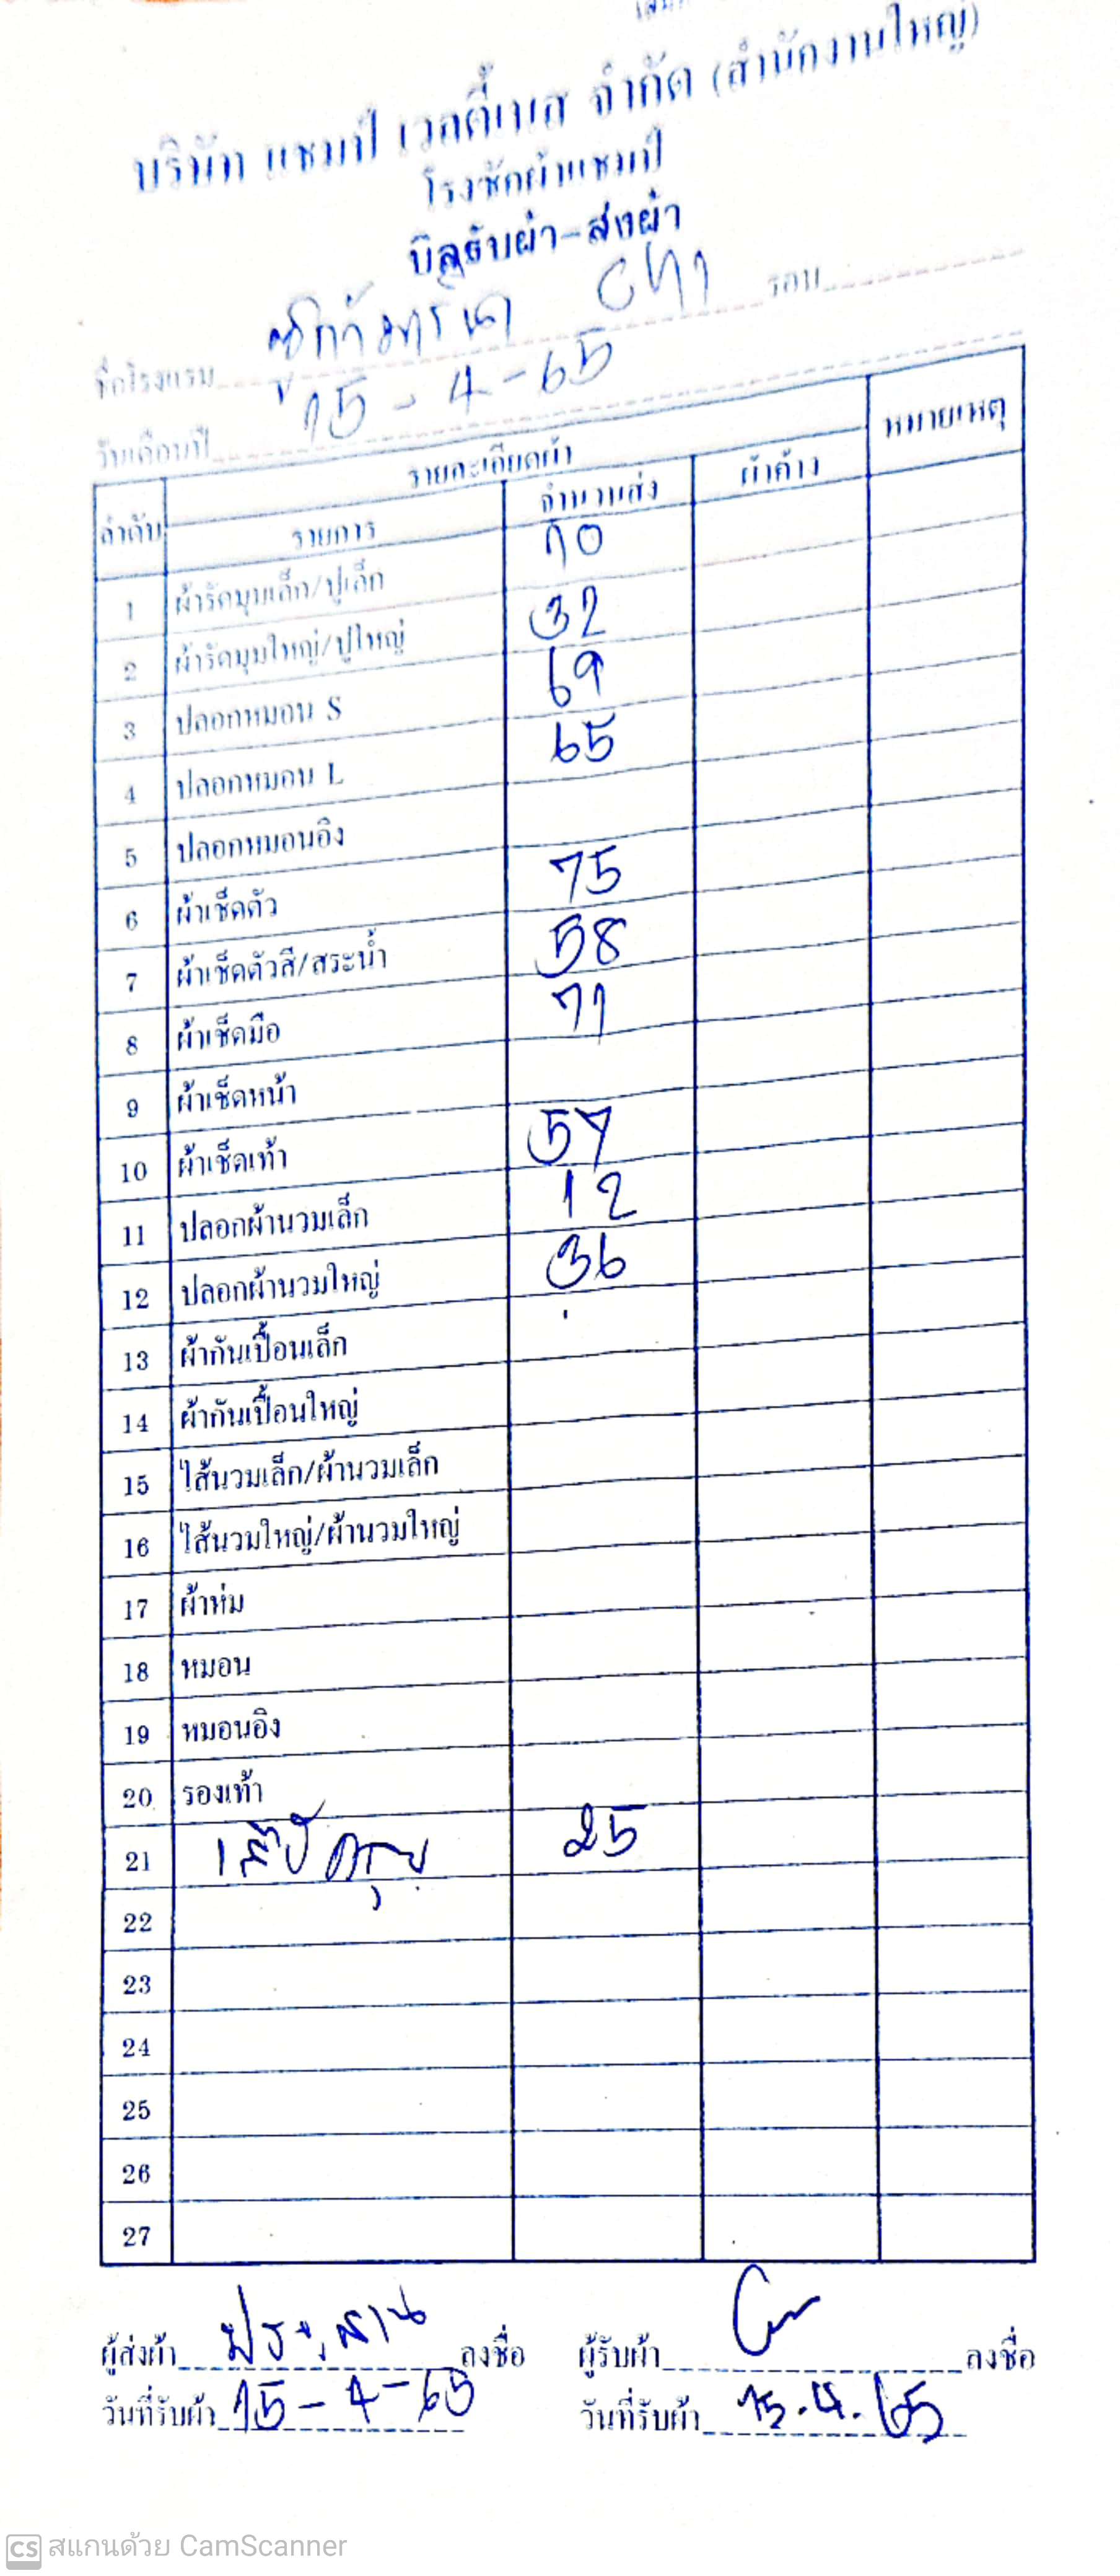 บริษัท แชมป์ เวลตี้เนส จำกัด (สำนักงานใหญ่)
โรงซักผ้าแชมป์
บิลรับผ้า-ส่งผ้า
ชื่อโรงแรม รอบ
วันเดือนปี 15-4-65
ลำดับ รายละเอียดผ้า หมายเหตุ
รายการ จำนวนส่ง ผ้าค้าง
1 ผ้ารัดมุมเล็ก/ปูเล็ก 10
2 ผ้ารัดมุมใหญ่/ปูใหญ่ 32
3 ปลอกหมอน S 69
4 ปลอกหมอน L 65
5 ปลอกหมอนอิง
6 ผ้าเช็ดตัว 75
7 ผ้าเช็ดตัวสี/สระน้ำ 58
8 ผ้าเช็ดมือ 71
9 ผ้าเช็ดหน้า
10 ผ้าเช็ดเท้า 57
11 ปลอกผ้านวมเล็ก 12
12 ปลอกผ้านวมใหญ่ 36
13 ผ้ากันเปื้อนเล็ก
14 ผ้ากันเปื้อนใหญ่
15 ไส้นวมเล็ก/ผ้านวมเล็ก
16 ไส้นวมใหญ่/ผ้านวมใหญ่
17 ผ้าห่ม
18 หมอน
19 หมอนอิง
20 รองเท้า
21 เสื้อคลุม 25
22
23
24
25
26
27
ผู้ส่งผ้า ลงชื่อ ผู้รับผ้า ลงชื่อ
วันที่รับผ้า 15-4-65 วันที่รับผ้า 15.4.65
CS สแกนด้วย CamScanner